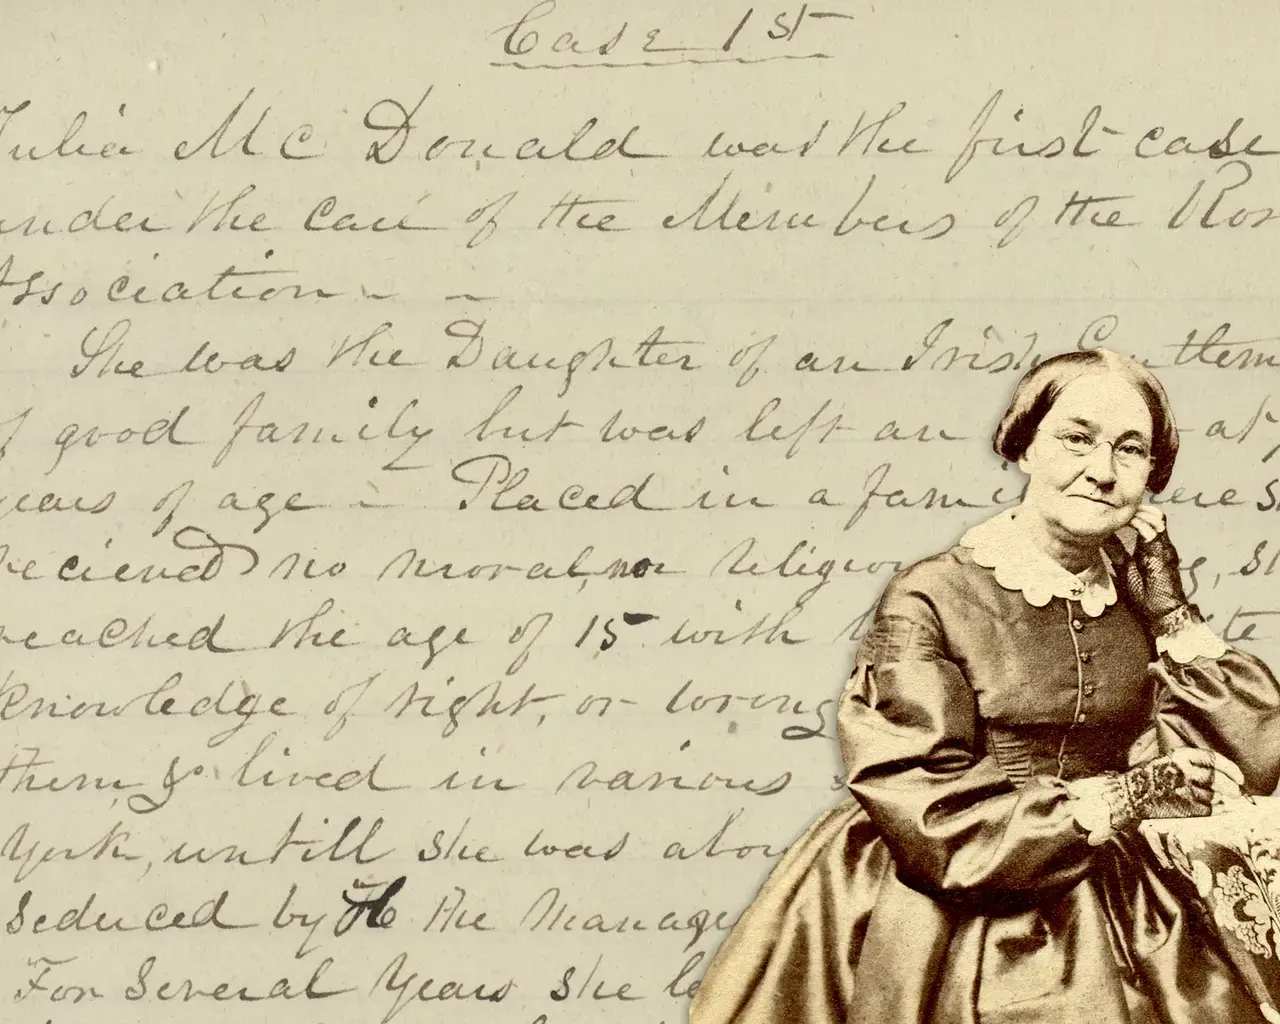 Case 1st
Julia McDonald was the first case
under the care of the Members of the Ros
Association - -
She was the Daughter of an Irish Gentlem
of good family but was left an at
years of age - Placed in a fami ere s
recieved no moral, nor religiou g, s
reached the age of 15 with te
knowledge of right, or wrong
them, & lived in various
York, untill she was abou
seduced by H the manage
For several years she le